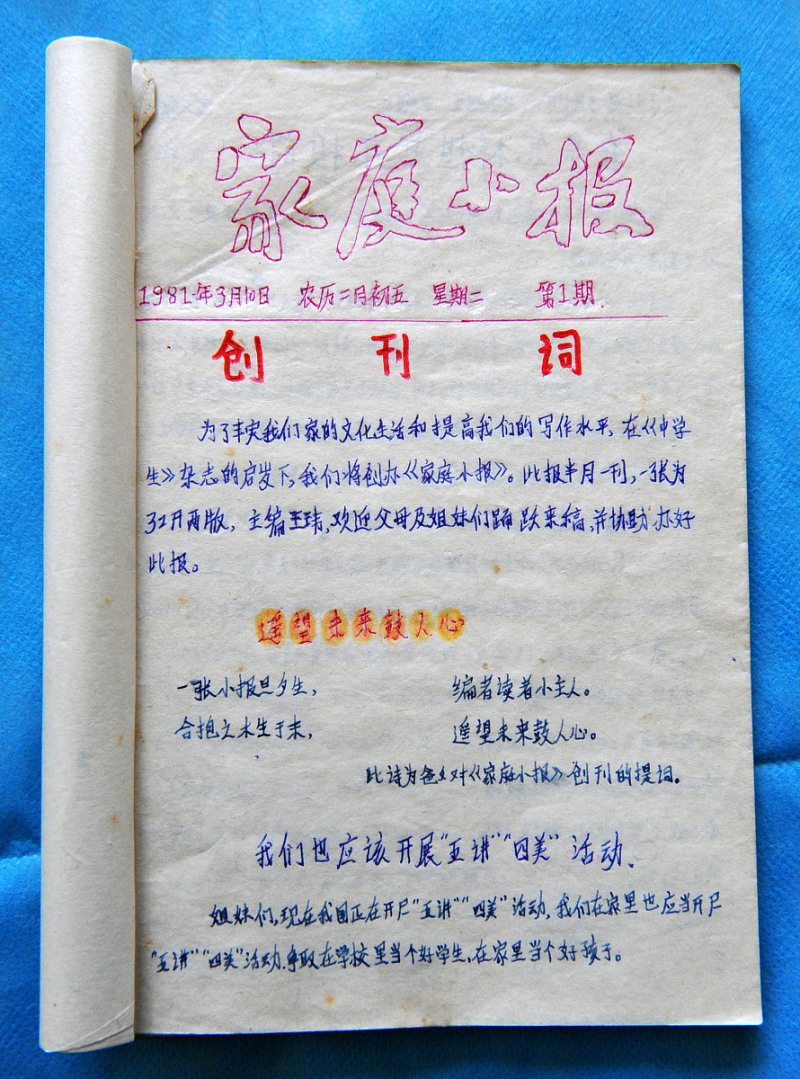 家庭小报
1981年3月10日 农历二月初五 星期二 第1期.
创刊词
为了丰实我们家的文化生活和提高我们的写作水平,在《中学
生》杂志的启发下,我们将创办《家庭小报》。此报半月一刊,一张为
32开两版,主编王玮,欢迎父母及姐妹们踊跃来稿,并协助办好
此报。
遥望未来鼓人心
一张小报旦夕生, 编者读者小主人。
合抱之木生于末, 遥望未来鼓人心。
此诗为爸爸对《家庭小报》创刊的提词。
我们也应该开展“五讲”“四美”活动.
姐妹们,现在我国正在开尸“五讲”“四美”活动,我们在家里也应当开尸
“五讲”“四美”活动,争取在学校里当个好学生,在家里当个好孩子。